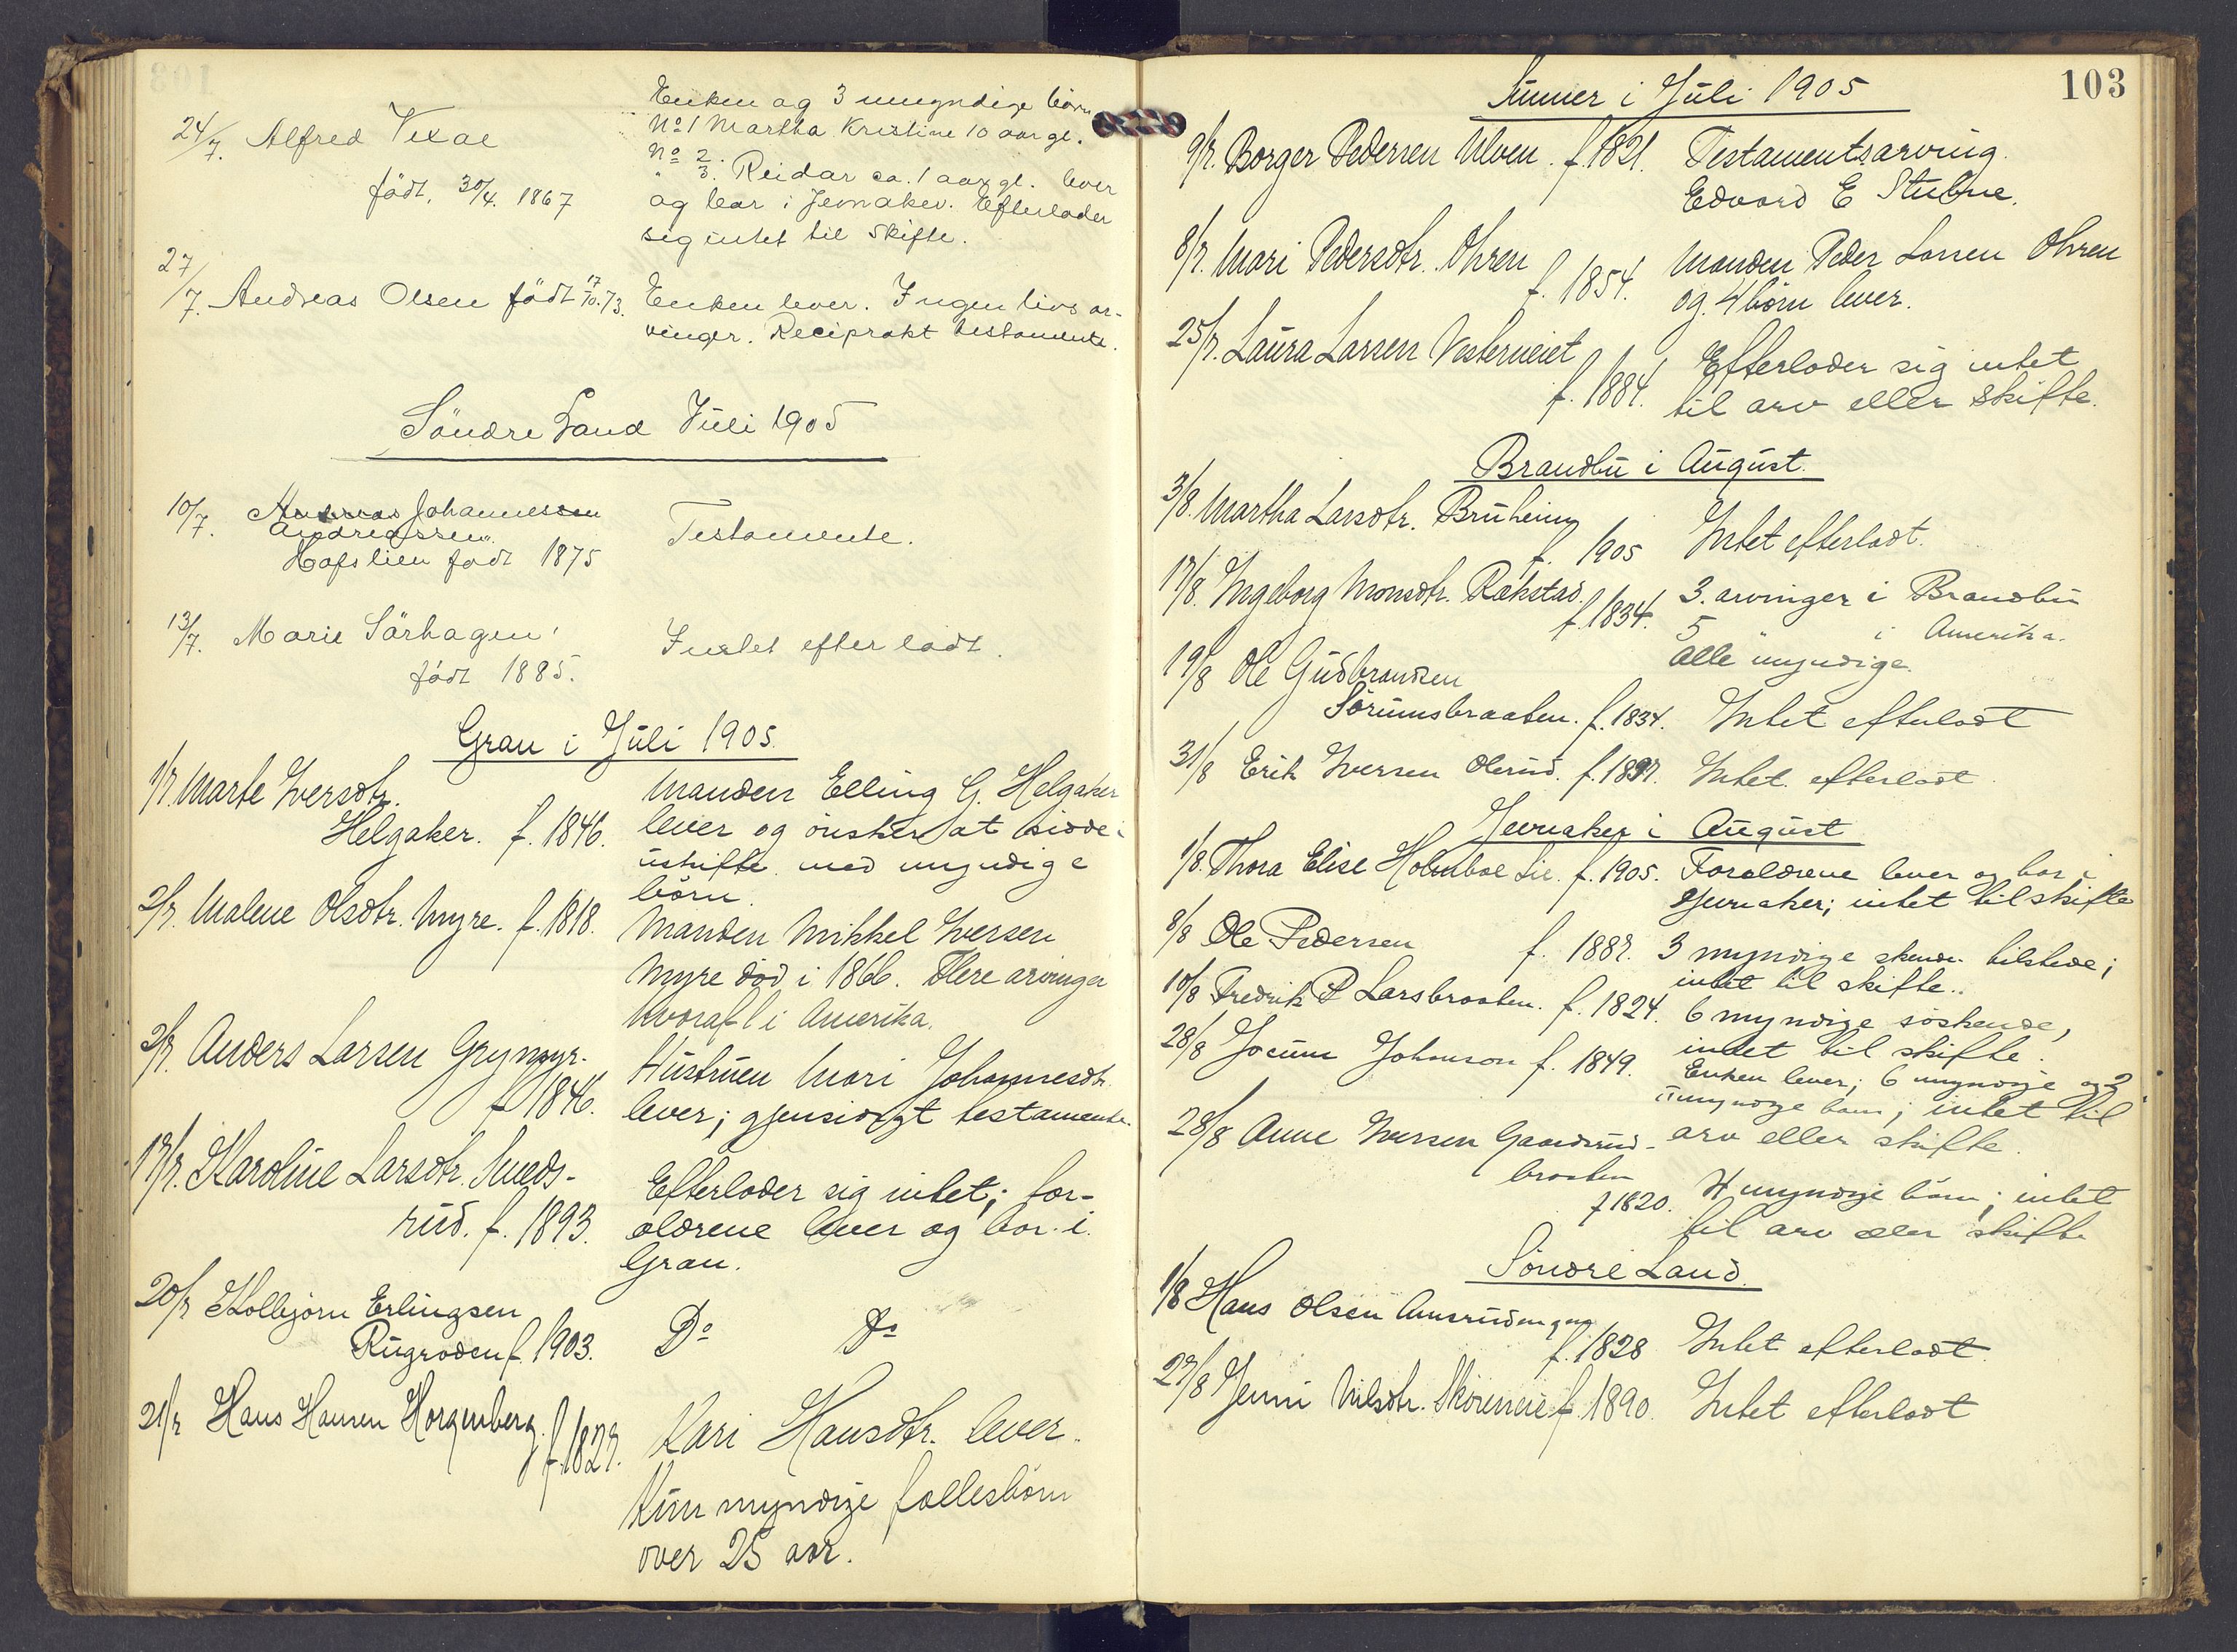 24/7. Alfred Vexal
født, 30/4. 1867
Enken og 3 umyndige børn
No 1 Martha Kristine 10 aar gl.
No 2.
" 3. Reidar ca. 1 aar gl. lever
og bor i Jevnaker. Efterlader
sig intet til skifte.
27/7. Andreas Olsen født 17/10.73.
Enken lever. Ingen livsar-
vinger. Reciprokt testamente.
Söndre Land Juli 1905
10/7. Johannessen
Andreassen
Hofslien født 1875
Testamente.
13/7. Marie Sörhagen.
født 1885.
Intet efterladt.
Gran i Juli 1905.
1/7. Marte Iversdtr.
Helgaker. f. 1846.
Manden Elling G. Helgaker
lever og ønsker at sidde i
uskifte med myndige
börn.
2/7. Malene Olsdtr. Myre. f. 1818.
Manden Mikkel Iversen
Myre död i 1866. Flere arvinger
hvoraf 1 i Amerika.
2/7 Anders Larsen Grymyr.
f. 1846.
Hustruen Mari Johannesdtr.
lever; gjensidigt testamente.
17/7. Karoline Larsdtr. Smeds-
rud. f. 1893.
Efterlader sig intet; for-
ældrene lever og bor i
Gran.
20/7 Kolbjörn Erlingsen
Rugroden f. 1903.
Do Do
21/7 Hans Hansen Horgenberg.
f. 1827.
Kari Hansdtr. lever.
Kun myndige fællesbörn
over 25 aar.
103
Lunner i Juli 1905
9/7. Borger Pedersen Ulven. f. 1821.
Testamentsarving.
Edvard E Stubne.
8/7. Mari Pedersdtr. Ohren
f. 1854.
Manden Peder Larsen Ohren
og 4 börn lever.
25/7. Laura Larsen Vesterneiet
f. 1884.
Efterlader sig intet
til arv eller skifte.
Brandbu i August.
3/8. Martha Larsdtr. Bruheim
f. 1905
Intet efterladt.
17/8. Ingeborg Monsdtr. Rækstad.
f. 1834.
3. arvinger i Brandbu
5 " i Amerika.
Alle myndige.
19/8 Ole Gudbrandsen
Sörumsbraaten. f. 1834.
Intet efterladt
31/8 Erik Iversen Olerud. f. 1897.
Intet efterladt
Jevnaker i August
1/8. Thora Elise Holmboe Lie. f. 1905.
Forældrene lever og bor i
Jevnaker; intet til skifte
8/8 Ole Pedersen f. 1887.
3 myndige tilstede;
intet til skifte.
10/8 Fredrik P Larsbraaten. f. 1824.
6 myndige söskende,
intet til skifte.
28/8 Jocum Johnson f. 1849.
Enken lever; 6 myndige og 2
umyndige barn; intet til
arv eller skifte.
28/8 Anne Iversen Gaardsrud-
braaten
f 1820.
4 myndige barn; intet
til arv eller skifte
Söndre Land.
1/8 Hans Olsen
f. 1828
Intet efterladt.
27/8 Jenni Nilsdtr. f. 1890.
Intet efterladt